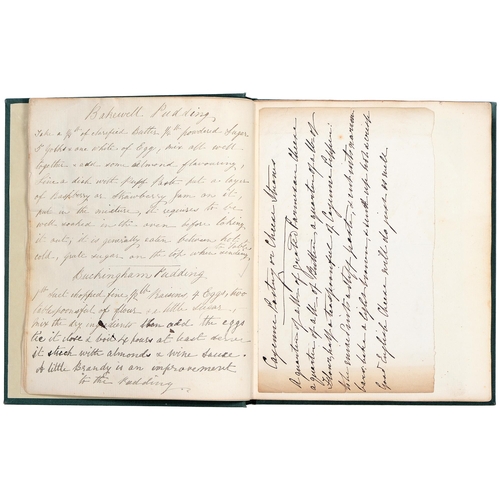 Bakewell Pudding
Take a ¼ lb of clarified Butter ¼ lb powdered Sugar
5 Yolks & one white of Egg, mix all well
together add some almond flavouring,
line a dish with Puff Paste put a layer
of Raspberry or Strawberry Jam on it,
put in the mixture, it requires to be
well soaked in the oven before taking
it out, it is generally eaten between hot &
cold, grate sugar on the top when sending
to table
Buckingham Pudding
Suet chopped fine ½ lb Raisins 4 Eggs, two
tablespoonsful of flour, a little Sugar,
mix the dry ingredients then add the eggs
tie it close & boil 4 hours at least serve
it stuck with almonds & wine sauce.
A little Brandy is an improvement
to the Pudding
Cayenne Pastry or Cheese Straws
A quarter of a lb of grated Parmesan Cheese
a quarter of a lb of Butter, a quarter of a lb of
Flour, half a teaspoonful of Cayenne Pepper.
Mix
bars, bake a light brown, & serve up hot & crisp
Good English Cheese will do quite as well.